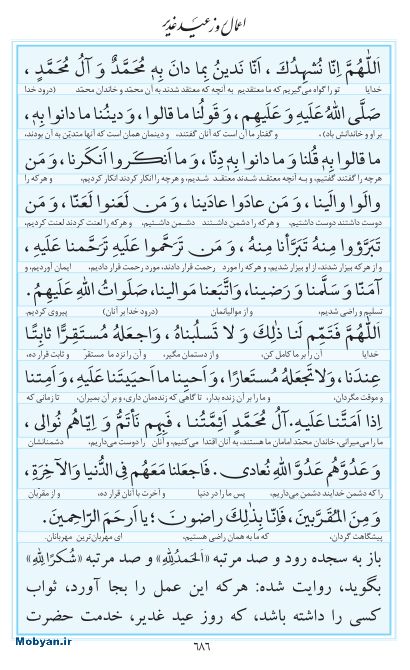 اعمال روز عید غدیر
اَللّٰهُمَّ اِنّا نُشْهِدُکَ ، اَنّا نَدینُ بِما دانَ بِهِ مُحَمَّدٌ وَ آلُ مُحَمَّدٍ ،
خدایا تو را گواه می‌گیریم که ما معتقدیم به آنچه که معتقد شدند به آن محمّد و خاندان محمّد (درود خدا
صَلَّی اللهُ عَلَیهِ وَ عَلَیهِم ، وَ قَولُنا ما قالوا ، وَ دینُنا ما دانوا بِهِ ،
بر او و خاندانش باد) ، و گفتار ما آن است که آنان گفتند، و دینمان همان است که آنها متدیّن به آن بودند،
ما قالوا بِهِ قُلنا وَ ما دانوا بِهِ دِنّا ، وَ ما اَنکَروا اَنکَرنا ، وَ مَن
هرچه را گفتند گفتیم، و به آنچه معتقد شدند معتقد شدیم، و هرچه را انکار کردند انکار کردیم، و هرکه را
والَوا والَینا ، وَ مَن عادَوا عادَینا ، وَ مَن لَعَنوا لَعَنّا ، وَ مَن
دوست داشتند دوست داشتیم، و هرکه را دشمن داشتند دشمن داشتیم، و هرکه را لعنت کردند لعنت کردیم،
تَبَرَّؤوا مِنهُ تَبَرَّأنا مِنهُ ، وَ مَن تَرَحَّموا عَلَیهِ تَرَحَّمنا عَلَیهِ ،
و از هرکه بیزار شدند، از او بیزار شدیم، و هرکه را مورد رحمت قرار دادند، مورد رحمت قرار دادیم، ایمان آوردیم، و
آمَنّا وَ سَلَّمنا وَ رَضینا ، وَ اتَّبَعنا مَوالینا ، صَلَواتُ اللهِ عَلَیهِم.
تسلیم و راضی شدیم، و از موالیانمان (درود خدا بر آنان) پیروی کردیم.
اَللّٰهُمَّ فَتَمِّم لَنا ذلِکَ وَ لا تَسلُبناهُ ، وَ اجعَلهُ مُستَقِرًّا ثابِتًا
خدایا آن را بر ما کامل کن، و از دستمان مگیر، و آن را نزد ما مستقر و ثابت قرار ده،
عِندَنا ، وَ لا تَجعَلهُ مُستَعارًا ، وَ اَحیِنا ما اَحیَیتَنا عَلَیهِ ، وَ اَمِتنا
و موقت مگردان، و ما را بر آن زنده بدار، تا گاهی که زنده‌مان داری، و بر آن بمیران، تا زمانی که
اِذا اَمَتَّنا عَلَیهِ. آلُ مُحَمَّدٍ اَئِمَّتُنا ، فَبِهِم نَأتَمُّ وَ اِیّاهُم نُوالی ،
ما را می‌میرانی، خاندان محمّد امامان ما هستند، به آنان اقتدا می‌کنیم، و آنان را دوست می‌داریم، دشمنانشان
وَ عَدُوَّهُم عَدُوَّ اللهِ نُعادی . فَاجعَلنا مَعَهُم فِی الدُّنیا وَ الآخِرَةِ ،
را که دشمن خدایند دشمن می‌داریم، پس ما را در دنیا و آخرت با آنان قرار ده، و از مقرّبان
وَ مِنَ المُقَرَّبینَ ، فَاِنّا بِذلِکَ راضونَ ؛ یا اَرحَمَ الرّاحِمینَ.
پیشگاهت گردان، که ما به همان راضی هستیم، ای مهربان‌ترین مهربانان.
باز به سجده رود و صد مرتبه «اَلحَمدُلِلّٰهِ» و صد مرتبه «شُکرًا لِلّٰهِ»
بگوید، روایت شده: هرکه این عمل را بجا آورد، ثواب
کسی را داشته باشد، که روز عید غدیر، خدمت حضرت
۶۸۶
Mobyan.ir